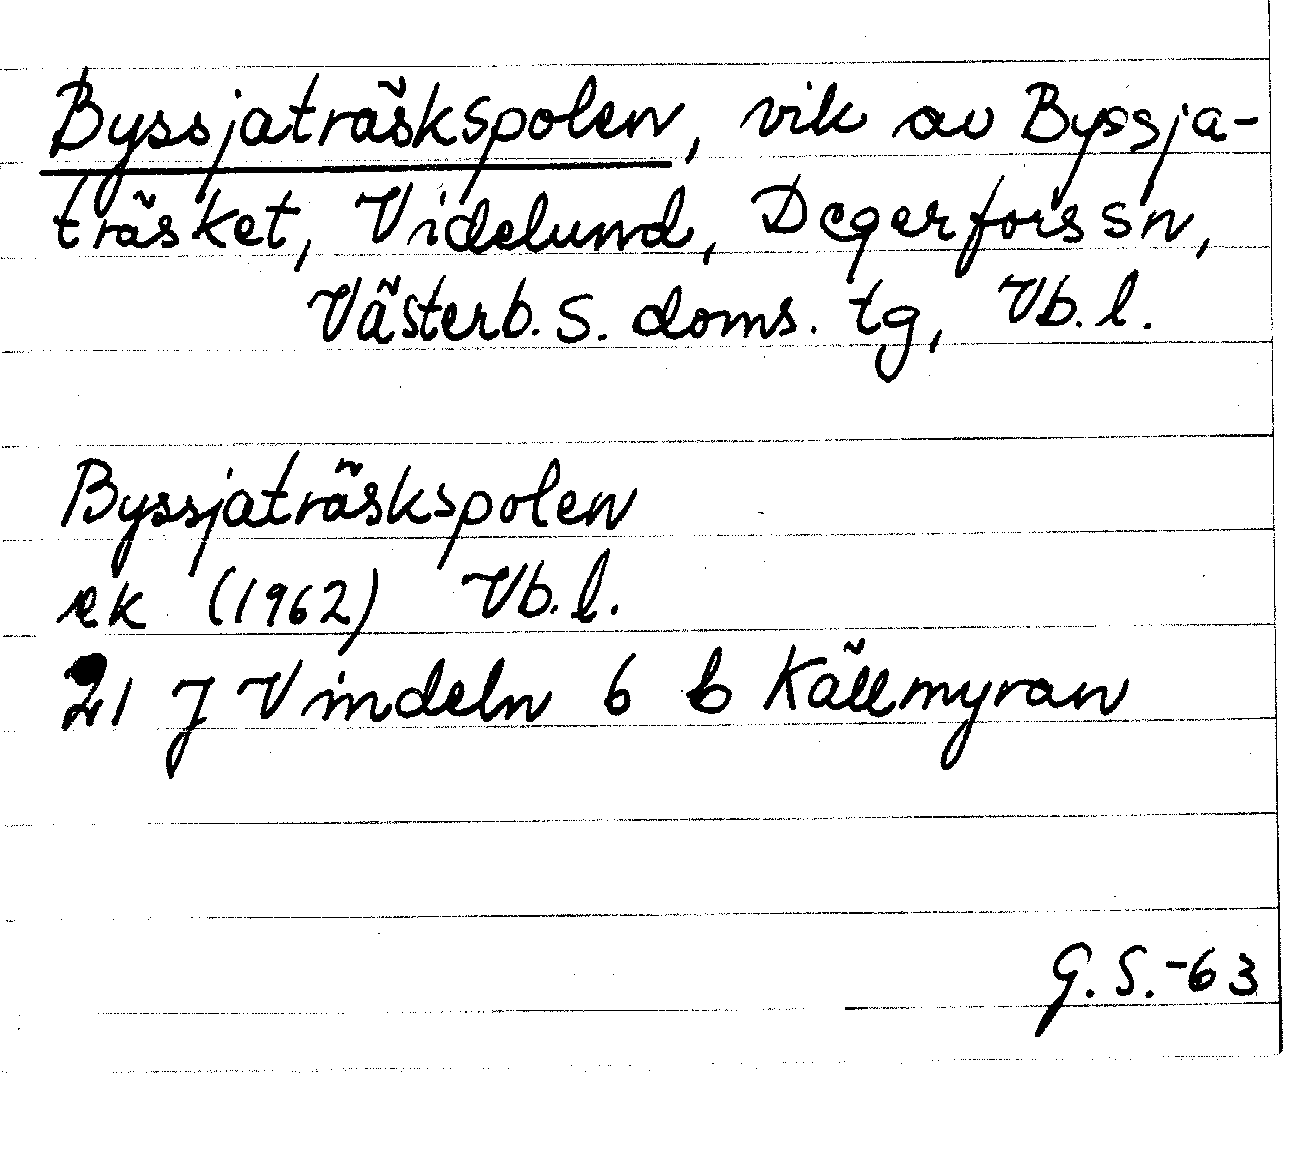 Byssjaträskspolen, vik av Byssja-
träsket, Videlund, Degerfors sn,
Västerb. S. doms. tg, Vb. l.
Byssjaträskspolen
ek (1962) Vb. l.
21 J Vindeln 6 b Källmyran
G. S. -63